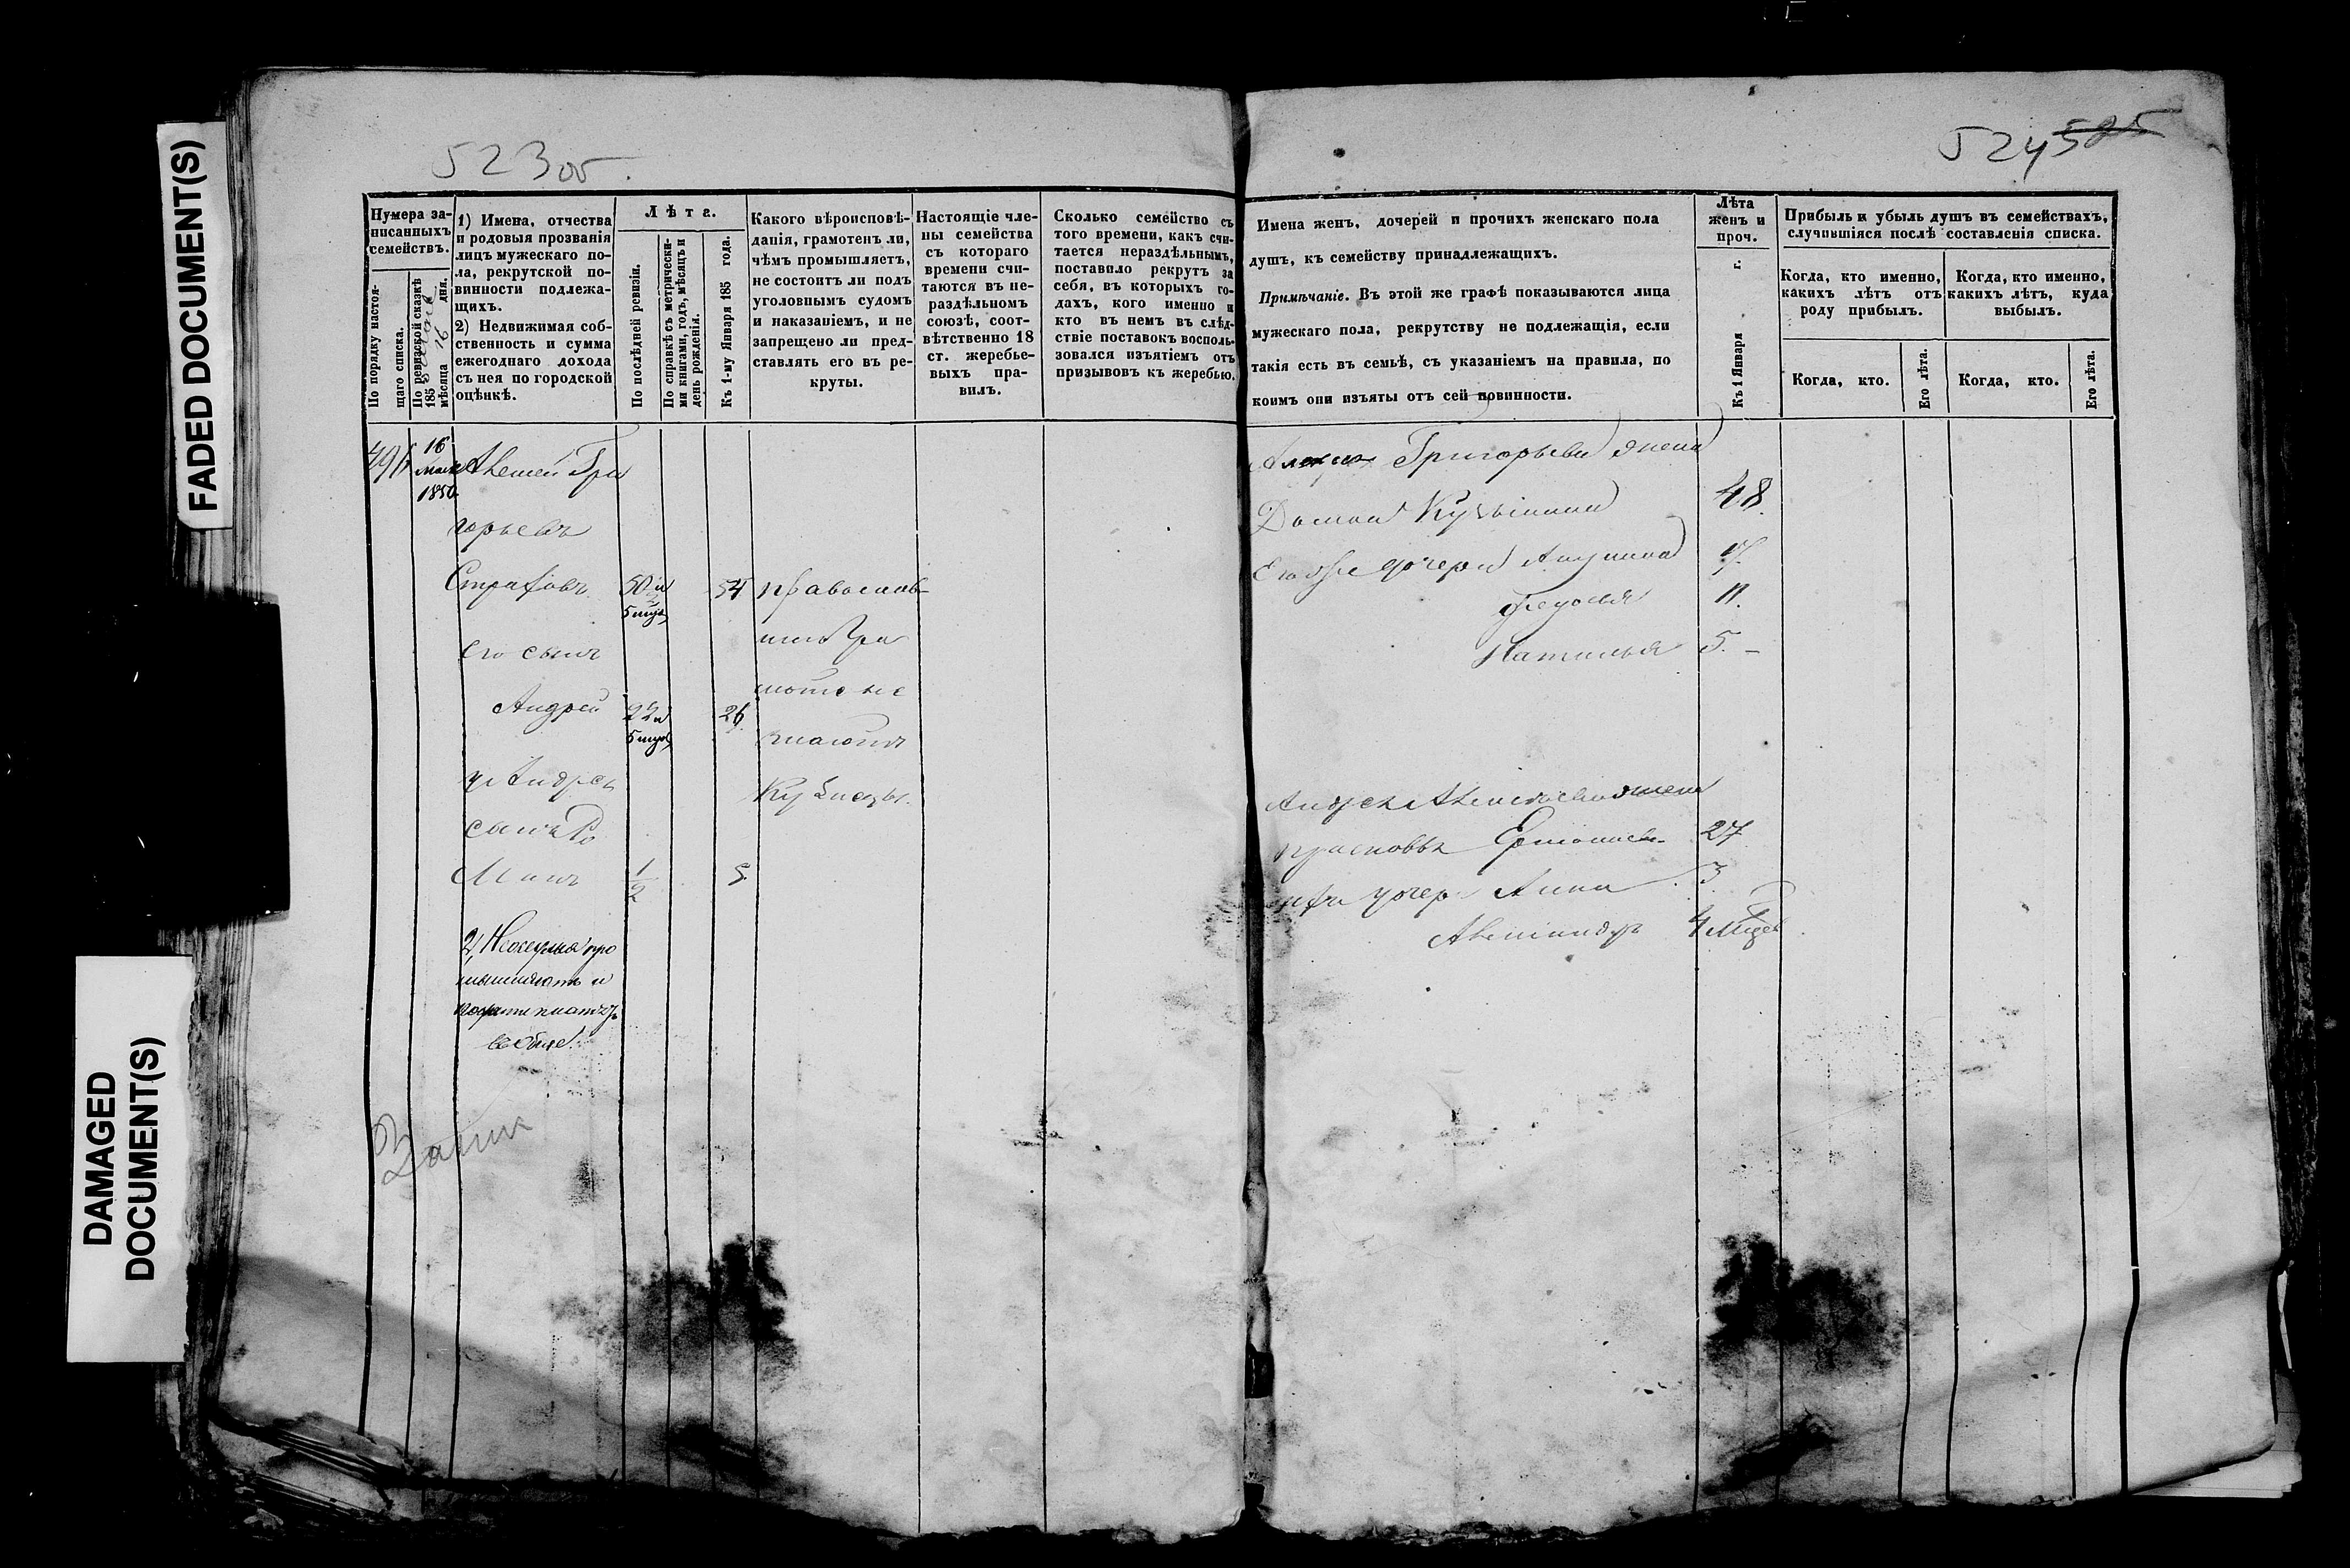 FADED DOCUMENT(S)
DAMAGED
DOCUMENT(S)
523об.
Нумера за-
писанныхъ
семействъ.
По порядку настоя-
щаго списка.
По ревизской сказкѣ
185
мѣсяца 16 дня.
1) Имена, отчества
и родовыя прозванія
лицъ мужескаго по-
ла, рекрутской по-
винности подлежа-
щихъ.
2) Недвижимая соб-
ственность и сумма
ежегоднаго дохода
съ нея по городской
оцѣнкѣ.
Лѣта.
По послѣдней ревизіи.
По справкѣ съ метрически-
ми книгами, годъ, мѣсяцъ и
день рожденія.
Къ 1-му Января 185 года.
Какого вѣроисповѣ-
данія, грамотенъ ли,
чѣмъ промышляетъ,
не состоитъ ли подъ
уголовнымъ судомъ
и наказаніемъ, и не
запрещено ли пред-
ставлять его въ ре-
круты.
Настоящіе чле-
ны семейства
съ котораго
времени счи-
таются въ не-
раздѣльномъ
союзѣ, соот-
вѣтственно 18
ст. жеребье-
выхъ пра-
вилъ.
Сколько семейство съ
того времени, какъ счи-
тается нераздѣльнымъ,
поставило рекрутъ за
себя, въ которыхъ го-
дахъ, кого именно и
кто въ немъ въ слѣд-
ствіе поставокъ восполь-
зовался изъятіемъ отъ
призывовъ къ жеребью.
16
1850
Алексей Гри
горьевъ
50 и
54
православ-
его сынъ
Андрей
22 и
26
грамоте не
знаютъ
Кузнецы.
у Андрея
сынъ Ро
манъ
1/2
5.
2,
524 585
Имена женъ, дочерей и прочихъ женскаго пола
душъ, къ семейству принадлежащихъ.
Примѣчаніе. Въ этой же графѣ показываются лица
мужескаго пола, рекрутству не подлежащія, если
такія есть въ семьѣ, съ указаніемъ на правила, по
коимъ они изъяты отъ сей повинности.
Лѣта
женъ и
проч.
Къ 1 Января г.
Прибыль и убыль душъ въ семействахъ,
случившіяся послѣ составленія списка.
Когда, кто именно,
какихъ лѣтъ отъ
роду прибылъ.
Когда, кто именно,
какихъ лѣтъ, куда
выбылъ.
Когда, кто.
Его лѣта.
Когда, кто.
Его лѣта.
Алексея Григорьева жена
Домна Кузьмина 48.
Его же дочери Акулина 17.
Федосья 11.
Наталья 5. –
Андрея Алексеева жена
27
дочери Анна 3.
Александра 4 мѣсяц.